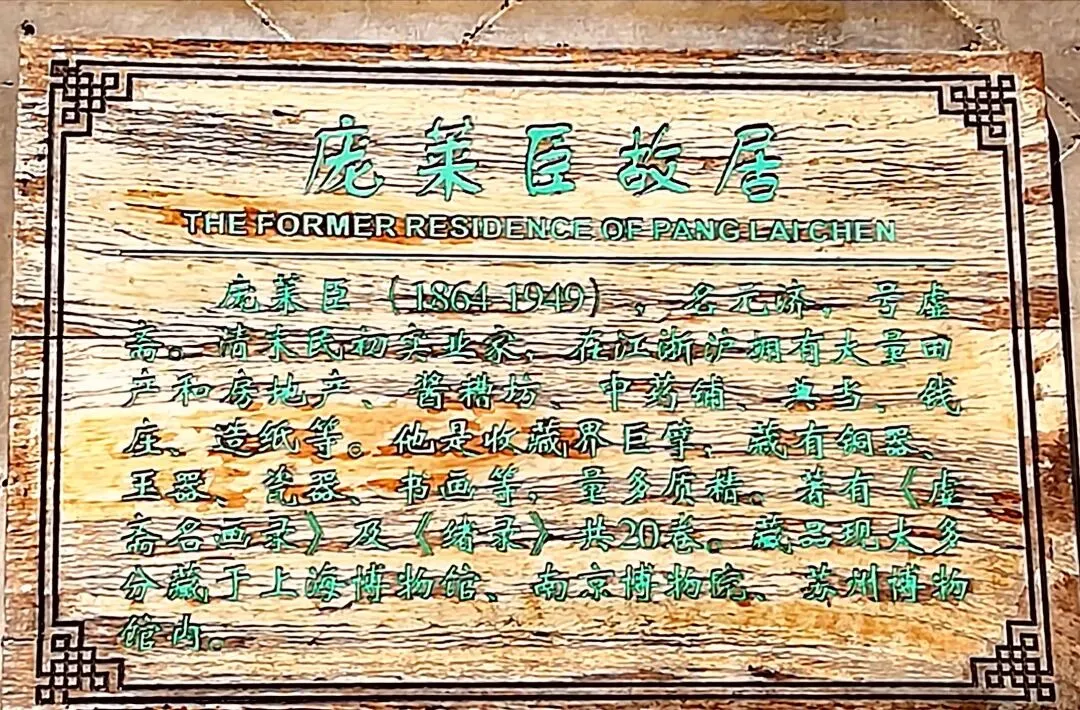 庞莱臣故居
THE FORMER RESIDENCE OF PANG LAI CHEN
庞莱臣（1864-1949），名元济，号虚
斋。清末民初实业家，在江浙沪拥有大量田
产和房地产、酱糟坊、中药铺、典当、钱
庄、造纸等。他是收藏界巨擘，藏有铜器、
玉器、瓷器、书画等，量多质精。著有《虚
斋名画录》及《续录》共20卷。藏品现大多
分藏于上海博物馆、南京博物院、苏州博物
馆内。